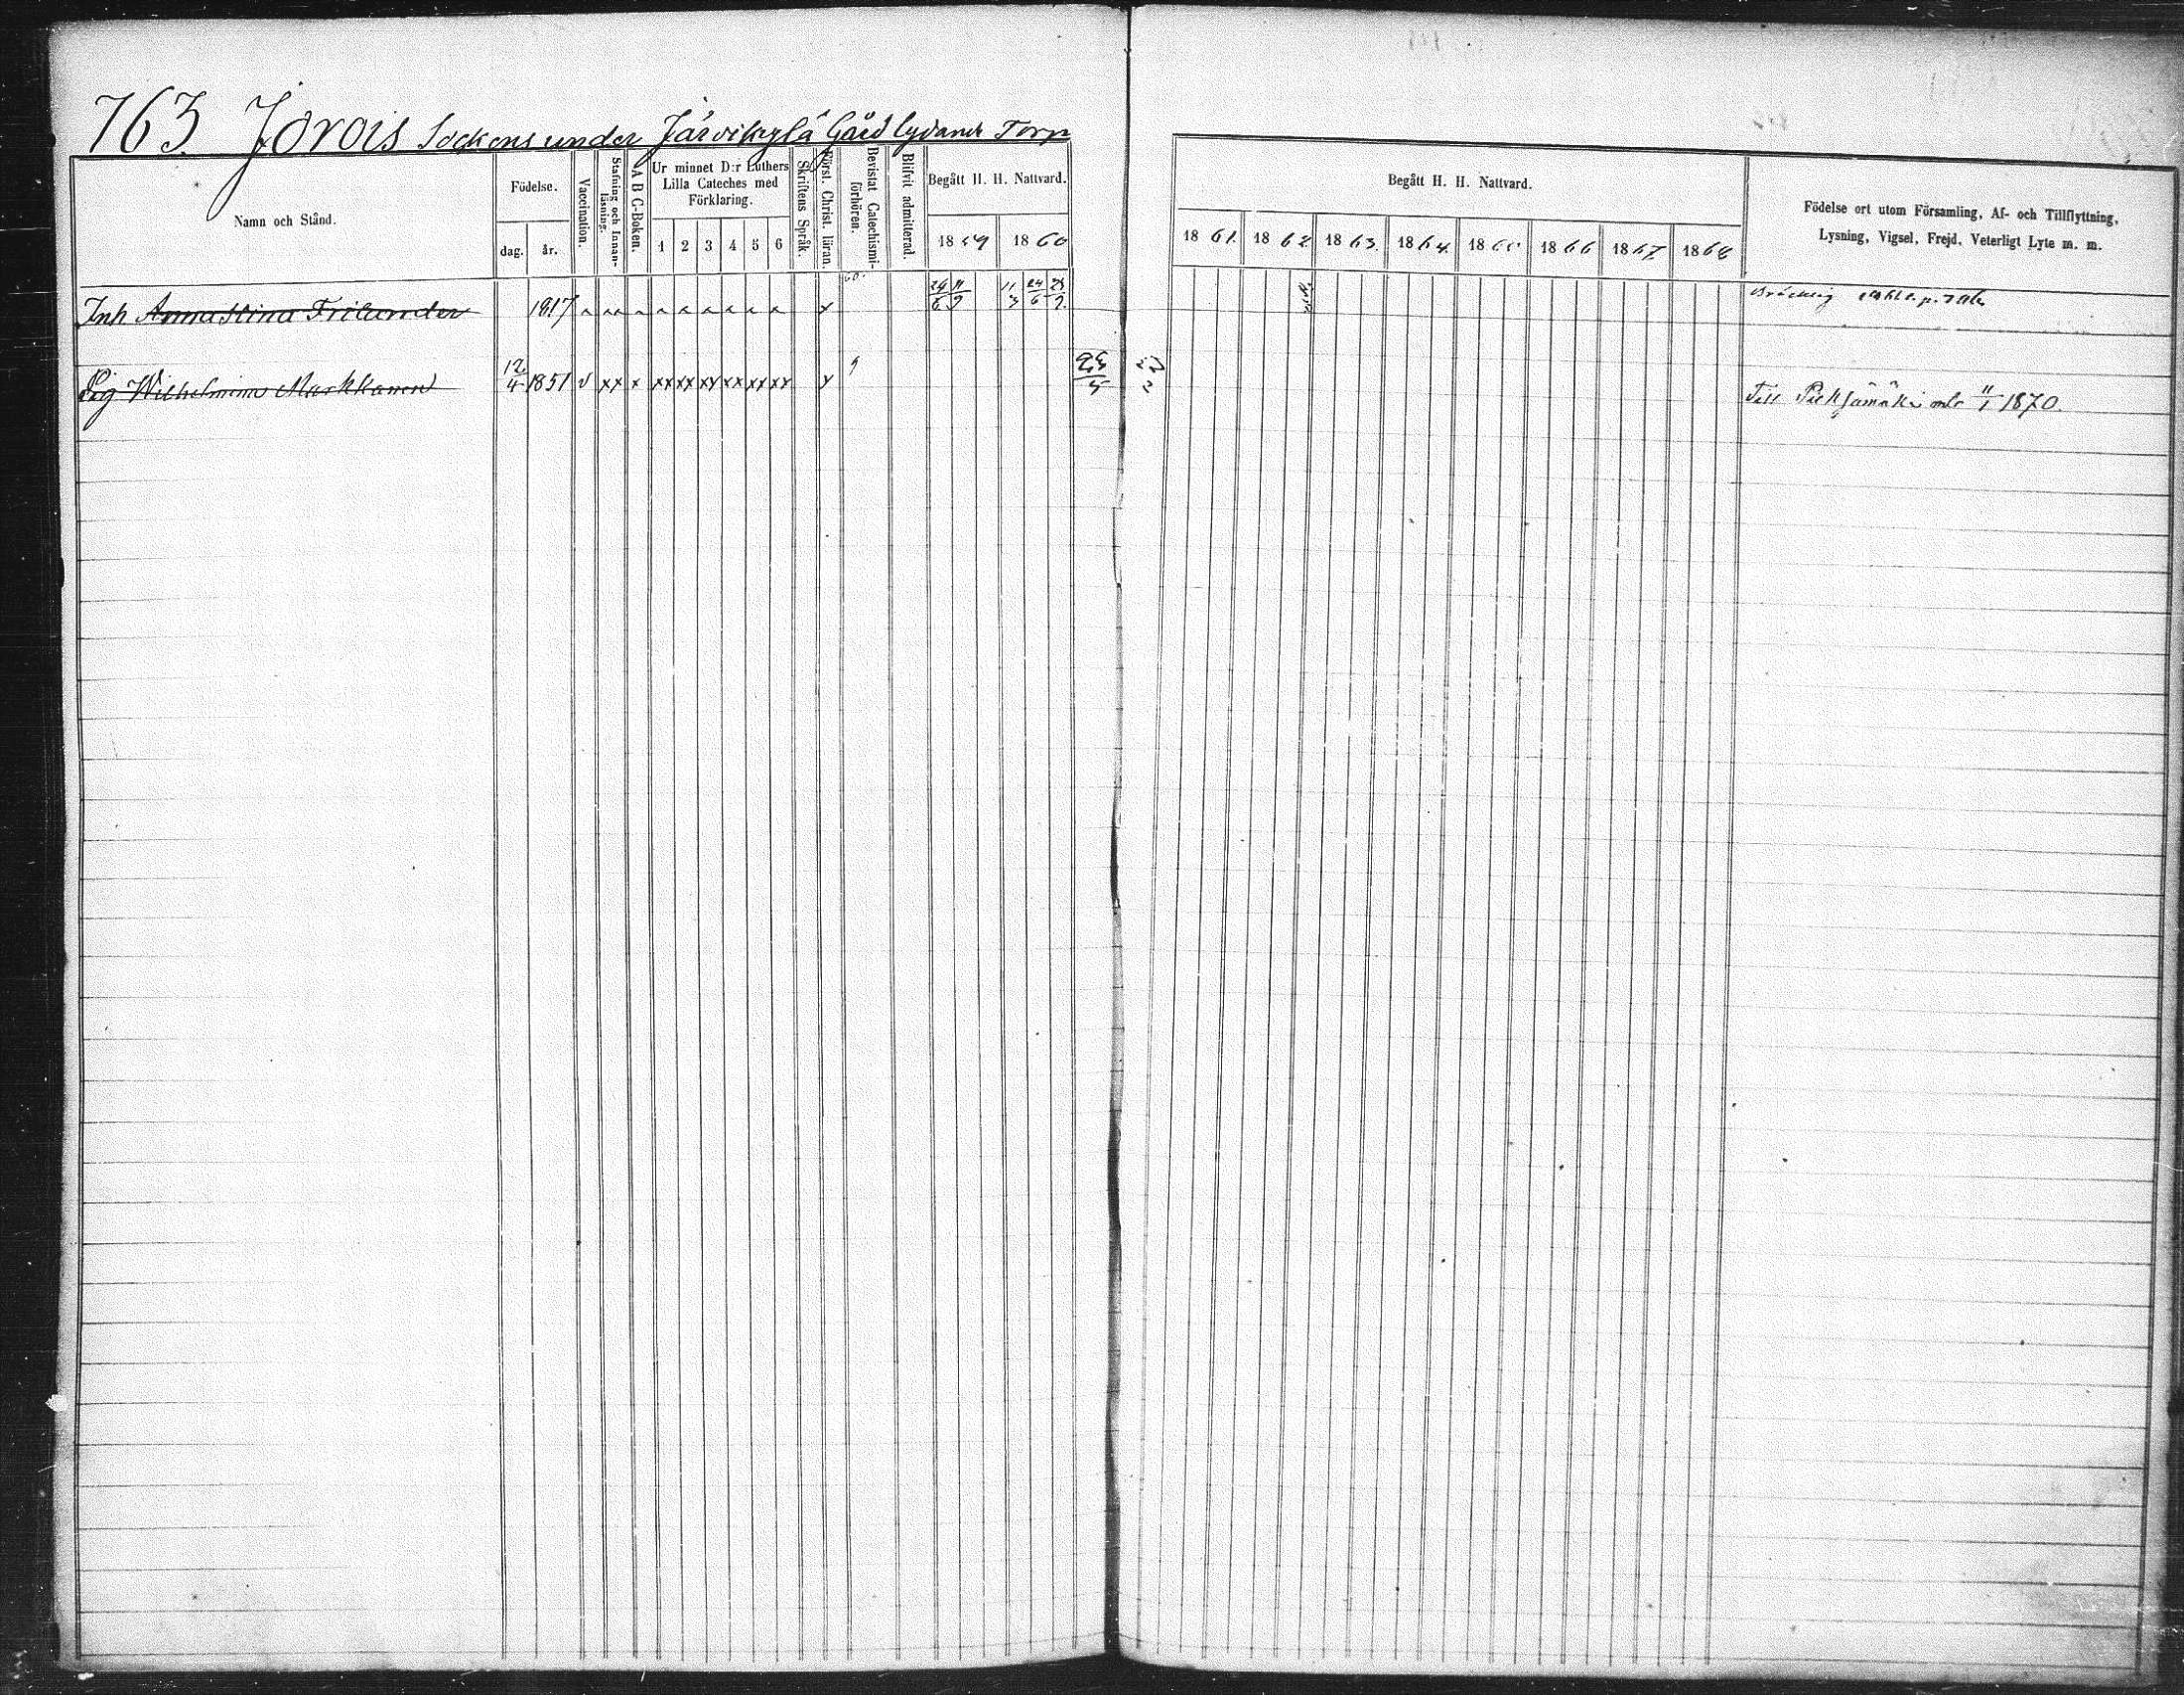 763. Jorois Sockens under Järvikylä Gård lydande Torp
Namn och Stånd.
Födelse.
dag. år.
Vaccination.
Stafning och Innanläsning.
A B C-Boken.
Ur minnet D:r Luthers Lilla Cateches med Förklaring.
1 2 3 4 5 6
Skriftens Språk.
Först. Christ. läran.
Bevistat Catechismiförhören.
Blifvit admitterad.
Begått H. H. Nattvard.
1859 1860
Begått H. H. Nattvard.
1861. 1862 1863. 1864. 1865 1866 1867. 1868
Födelse ort utom Församling, Af- och Tillflyttning,
Lysning, Vigsel, Frejd, Veterligt Lyte m. m.
Inh Anna Stina Frilander 1817 x xx x x x x x x x x 60. 24/6 11/9 11/3 24/6 23/9
Pig Wilhelmina Markkanen 12/4 1851 v xx x xx xx xx xx xx xx x 9 Till Pieksämäki 11/1 1870.